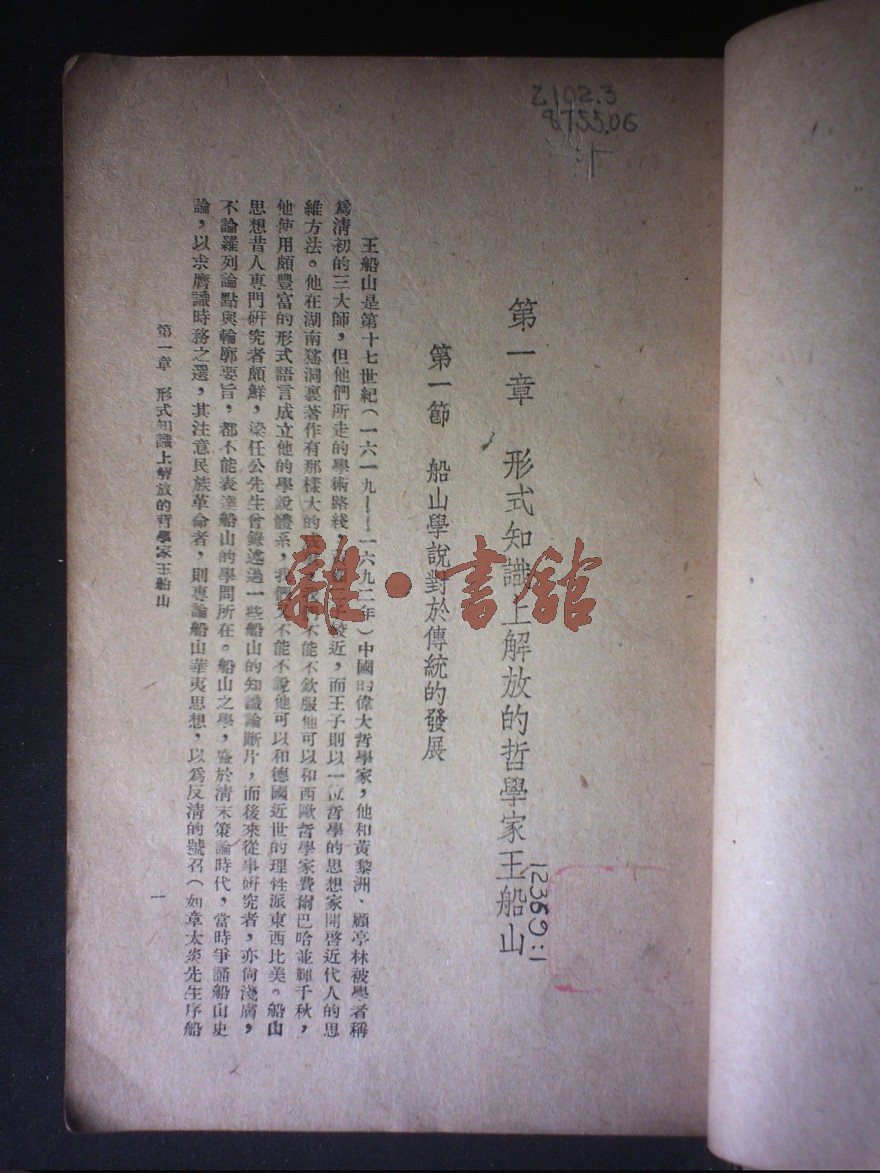 Z102.3
8755.06
:1
第一章 形式知識上解放的哲學家王船山
12369:1
第一節 船山學說對於傳統的發展
王船山是第十七世紀(一六一九——一六九二年)中國的偉大哲學家,他和黃黎洲、顧亭林被學者稱
爲清初的三大師,但他們所走的學術路綫,近,而王子則以一位哲學的思想家開啓近代人的思
維方法。他在湖南猺洞裏著作有那樣大的不能不欽服他可以和西歐哲學家費爾巴哈並輝千秋,
他使用頗豐富的形式語言成立他的學說體系,我們不能不說他可以和德國近世的理性派東西比美。船山
思想昔人專門研究者頗鮮,梁任公先生曾錄述過一些船山的知識論斷片,而後來從事研究者,亦尙淺膚,
不論羅列論點與輪廓要旨,都不能表達船山的學問所在。船山之學,盛於清末策論時代,當時爭誦船山史
論,以求膺識時務之選,其注意民族革命者,則專論船山華夷思想,以爲反清的號召(如章太炎先生序船
第一章 形式知識上解放的哲學家王船山
一
雜·書館